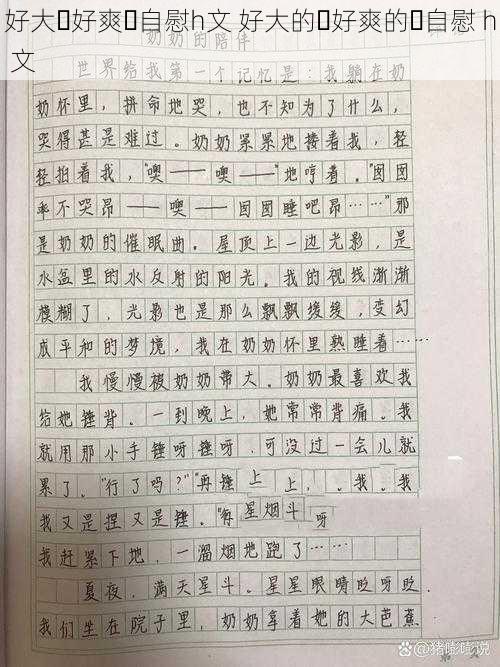 好大好爽自慰h文 好大的好爽的自慰 h
文
奶奶的陪伴
世界给我第一个记忆是：我躺在奶
奶怀里，拼命地哭，也不知为了什么，
哭得甚是难过。奶奶紧紧地搂着我，轻
轻拍着我，“噢——噢——”地哼着。“囡囡
乖不哭昂——噢——囡囡睡吧昂……”那
是奶奶的催眠曲。屋顶上一边光影，是
水盆里的水反射的阳光。我的视线渐渐
模糊了，光影也是那么飘飘缓缓，变幻
成平和的梦境，我在奶奶怀里熟睡着……
我慢慢被奶奶带大。奶奶最喜欢我
给她锤背。一到晚上，她常常背痛。我
就用那小手锤呀锤呀，可没过一会儿就
累了。“行了吗？”“再锤上上，。我。我
我又是捏又是锤。“再星烟斗呀
我赶紧下地，一溜烟地跑了……
夏夜，满天星斗。星星眼睛眨呀眨
我们坐在院子里，奶奶拿着她的大芭蕉
知乎 @猪嘭嘭说